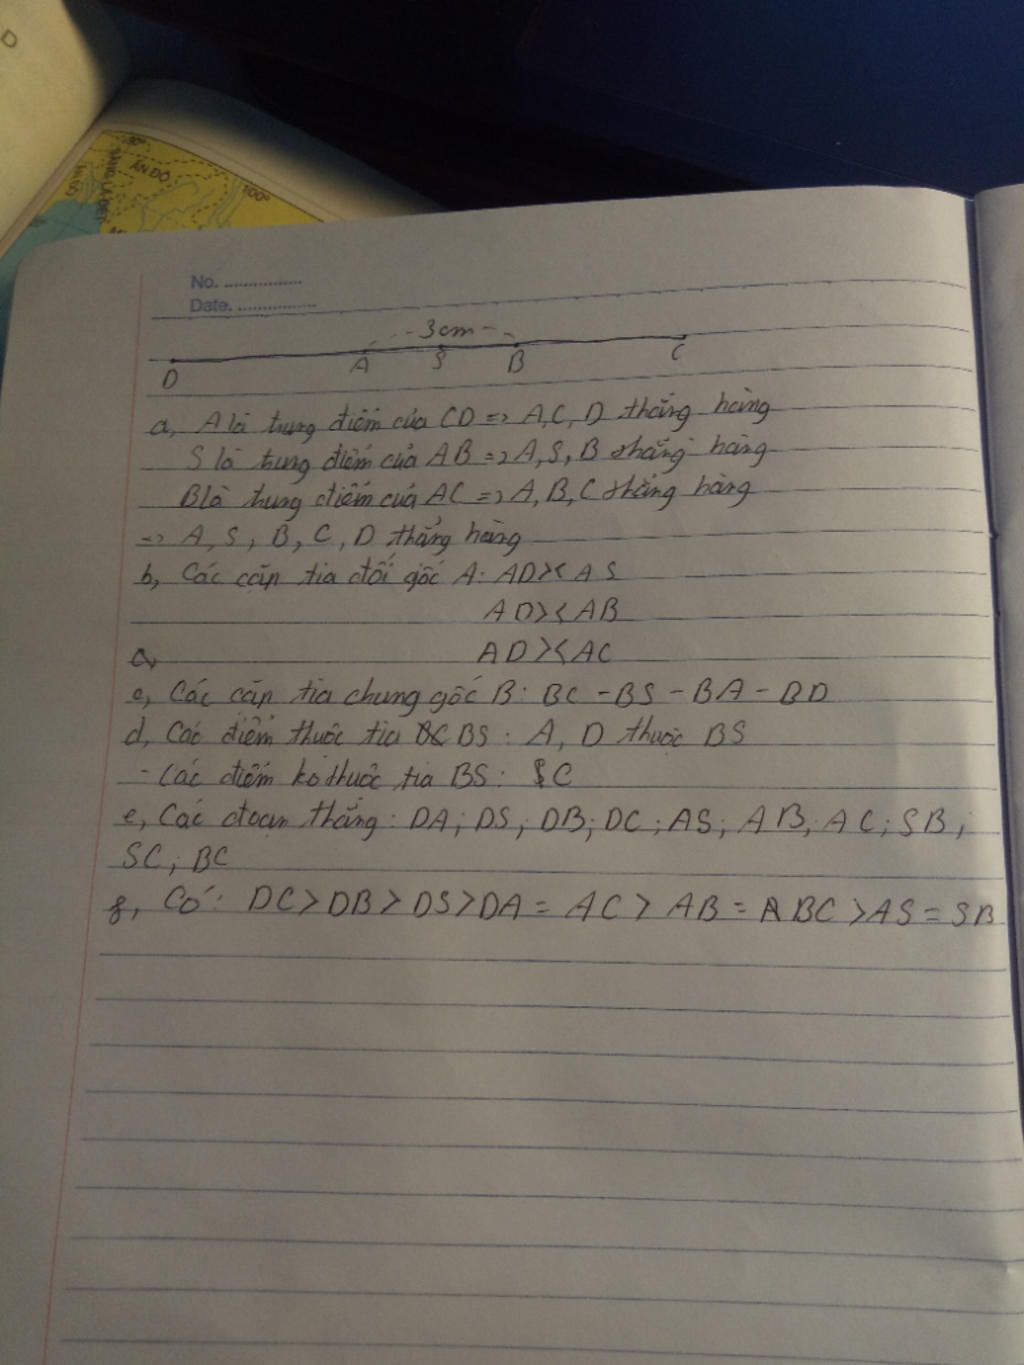 D
80°
BĂNG LA ĐÉT
ẤN ĐỘ
100°
No. ................
Date. ................
-3cm-
D A S B C
a, A là trung điểm của CD => A, C, D thẳng hàng
S là trung điểm của AB => A, S, B thẳng hàng
B là trung điểm của AC => A, B, C thẳng hàng
=> A, S, B, C, D thẳng hàng
b, Các cặp tia đối gốc A: AD>< AS
AD>< AB
AD>< AC
c, Các cặp tia chung gốc B: BC - BS - BA - BD
d, Các điểm thuộc tia BS: A, D thuộc BS
- Các điểm ko thuộc tia BS: C
e, Các đoạn thẳng: DA; DS; DB; DC; AS; AB, AC; SB;
SC; BC
g, Có: DC > DB > DS > DA = AC > AB = BC > AS = SB